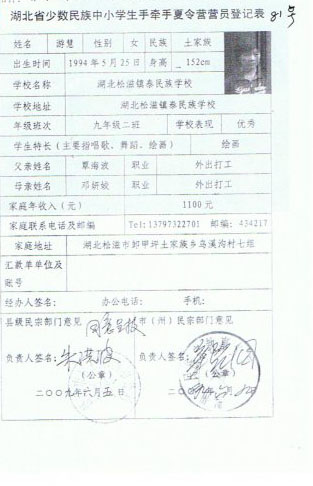 湖北省少数民族中小学生手牵手夏令营营员登记表 81号
姓名 游慧 性别 女 民族 土家族
出生时间 1994年5月25日 身高 152cm
学校名称 湖北松滋镇泰民族学校
学校地址 湖北松滋镇泰民族学校
年级班次 九年级二班 学校表现 优秀
学生特长（主要指唱歌、舞蹈、绘画） 绘画
父亲姓名 覃海波 职业 外出打工
母亲姓名 邓妍姣 职业 外出打工
家庭年收入（元） 1100元
家庭联系电话及邮编 Tel:13797322701 邮编: 434217
家庭地址 湖北松滋市卸甲坪土家族乡乌溪沟村七组
汇款单单位及
账号
经办人签名: 办公电话: 手机:
县级民宗部门意见 市（州）民宗部门意见
同意呈报
负责人签名: 负责人签名:
（公章） （公章）
二00九年六月五日